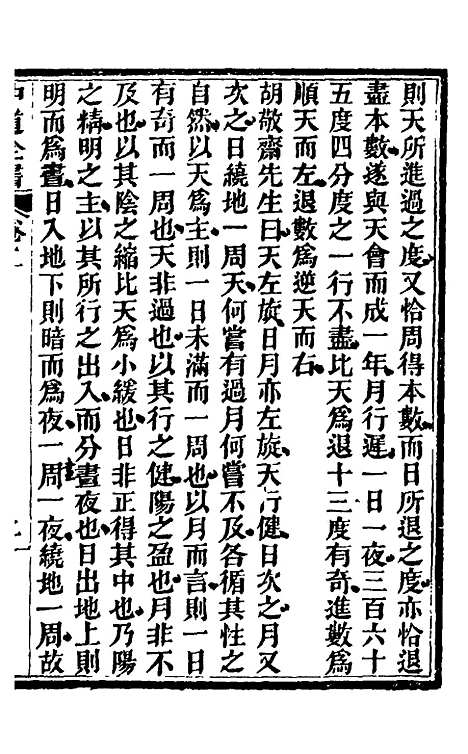 則天所進過之度又恰周得本數而日所退之度亦恰退
盡本數遂與天會而成一年月行遲一日一夜三百六十
五度四分度之一行不盡比天爲退十三度有奇進數爲
順天而左退數爲逆天而右
胡敬齋先生曰天左旋日月亦左旋天行健日次之月又
次之日繞地一周天何嘗有過月何嘗不及各循其性之
自然以天爲主則一日未滿而一周也以月而言則一日
有奇而一周也天非過也以其行之健陽之盈也月非不
及也以其陰之縮比天爲小緩也日非正得其中也乃陽
之精明之主以其所行之出入而分晝夜也日出地上則
明而爲晝日入地下則暗而爲夜一周一夜繞地一周故